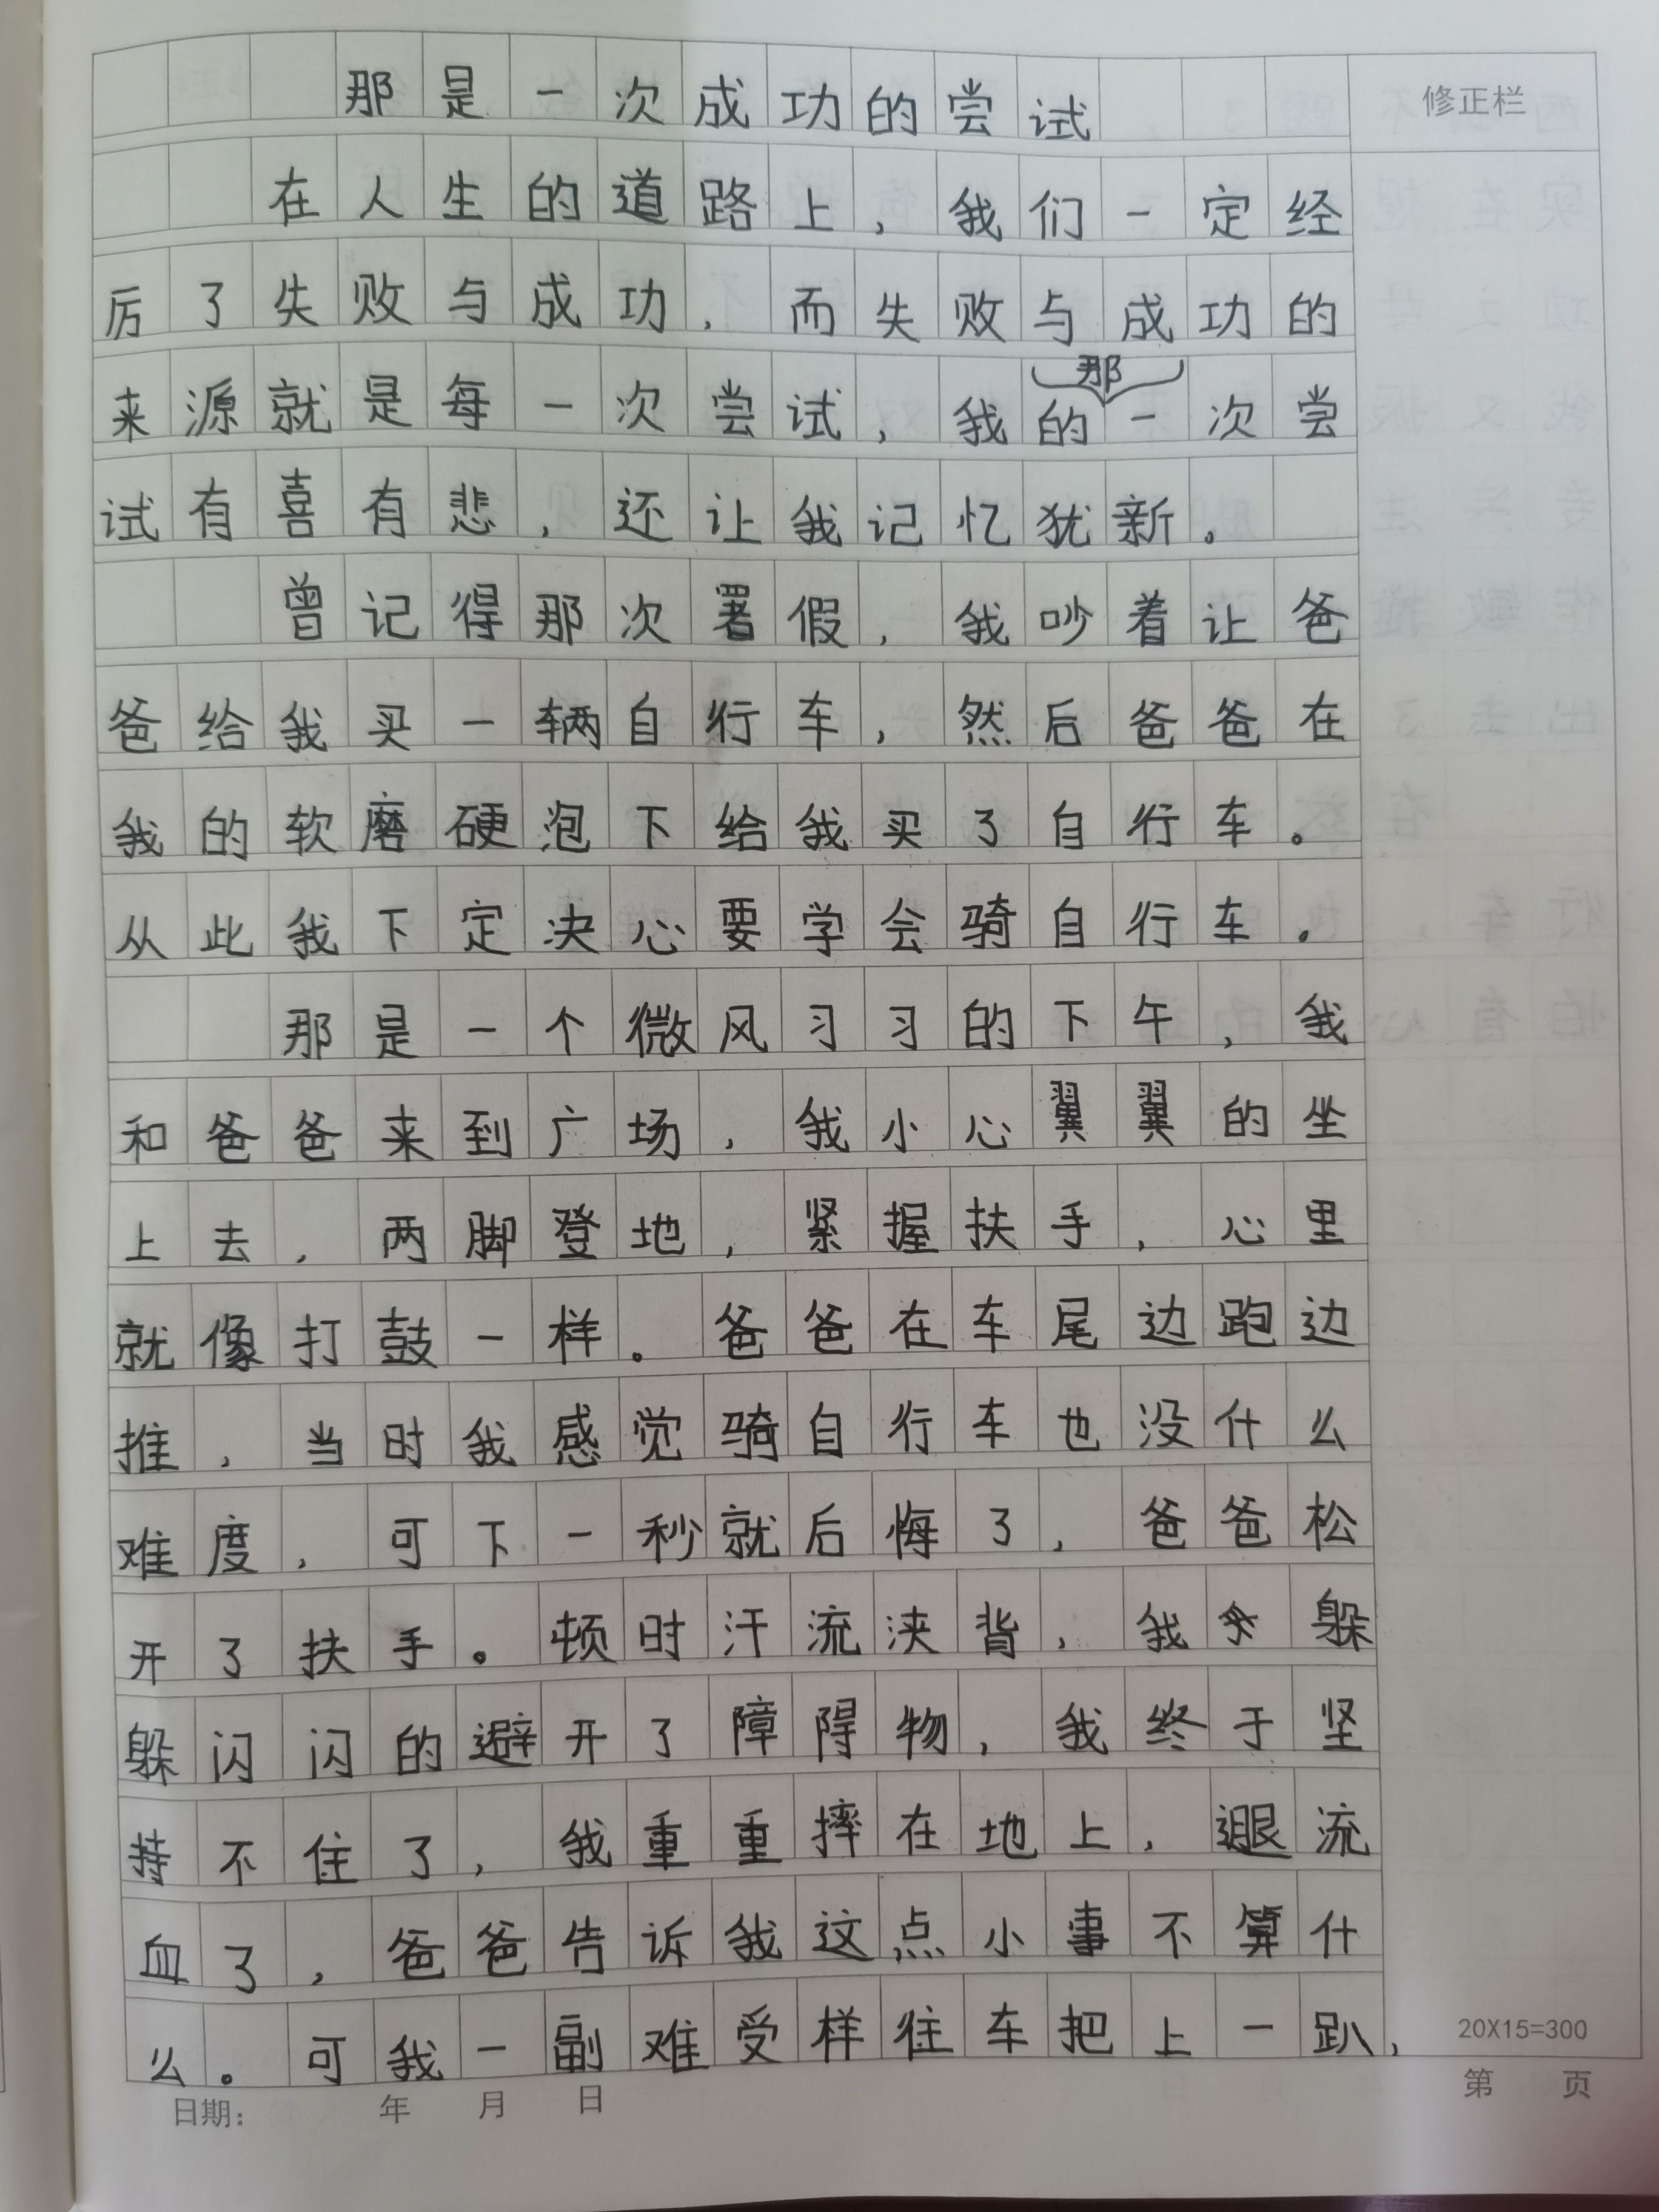 那是一次成功的尝试
修正栏
在人生的道路上，我们一定经
厉了失败与成功，而失败与成功的
来源就是每一次尝试，我的那一次尝
试有喜有悲，还让我记忆犹新。
曾记得那次署假，我吵着让爸
爸给我买一辆自行车，然后爸爸在
我的软磨硬泡下给我买了自行车。
从此我下定决心要学会骑自行车。
那是一个微风习习的下午，我
和爸爸来到广场，我小心翼翼的坐
上去，两脚登地，紧握扶手，心里
就像打鼓一样。爸爸在车尾边跑边
推，当时我感觉骑自行车也没什么
难度，可下一秒就后悔了，爸爸松
开了扶手。顿时汗流浃背，我躲
躲闪闪的避开了障碍物，我终于坚
持不住了，我重重摔在地上，退流
血了，爸爸告诉我这点小事不算什
么。可我一副难受样往车把上一趴，
20X15=300
日期： 年 月 日
第 页